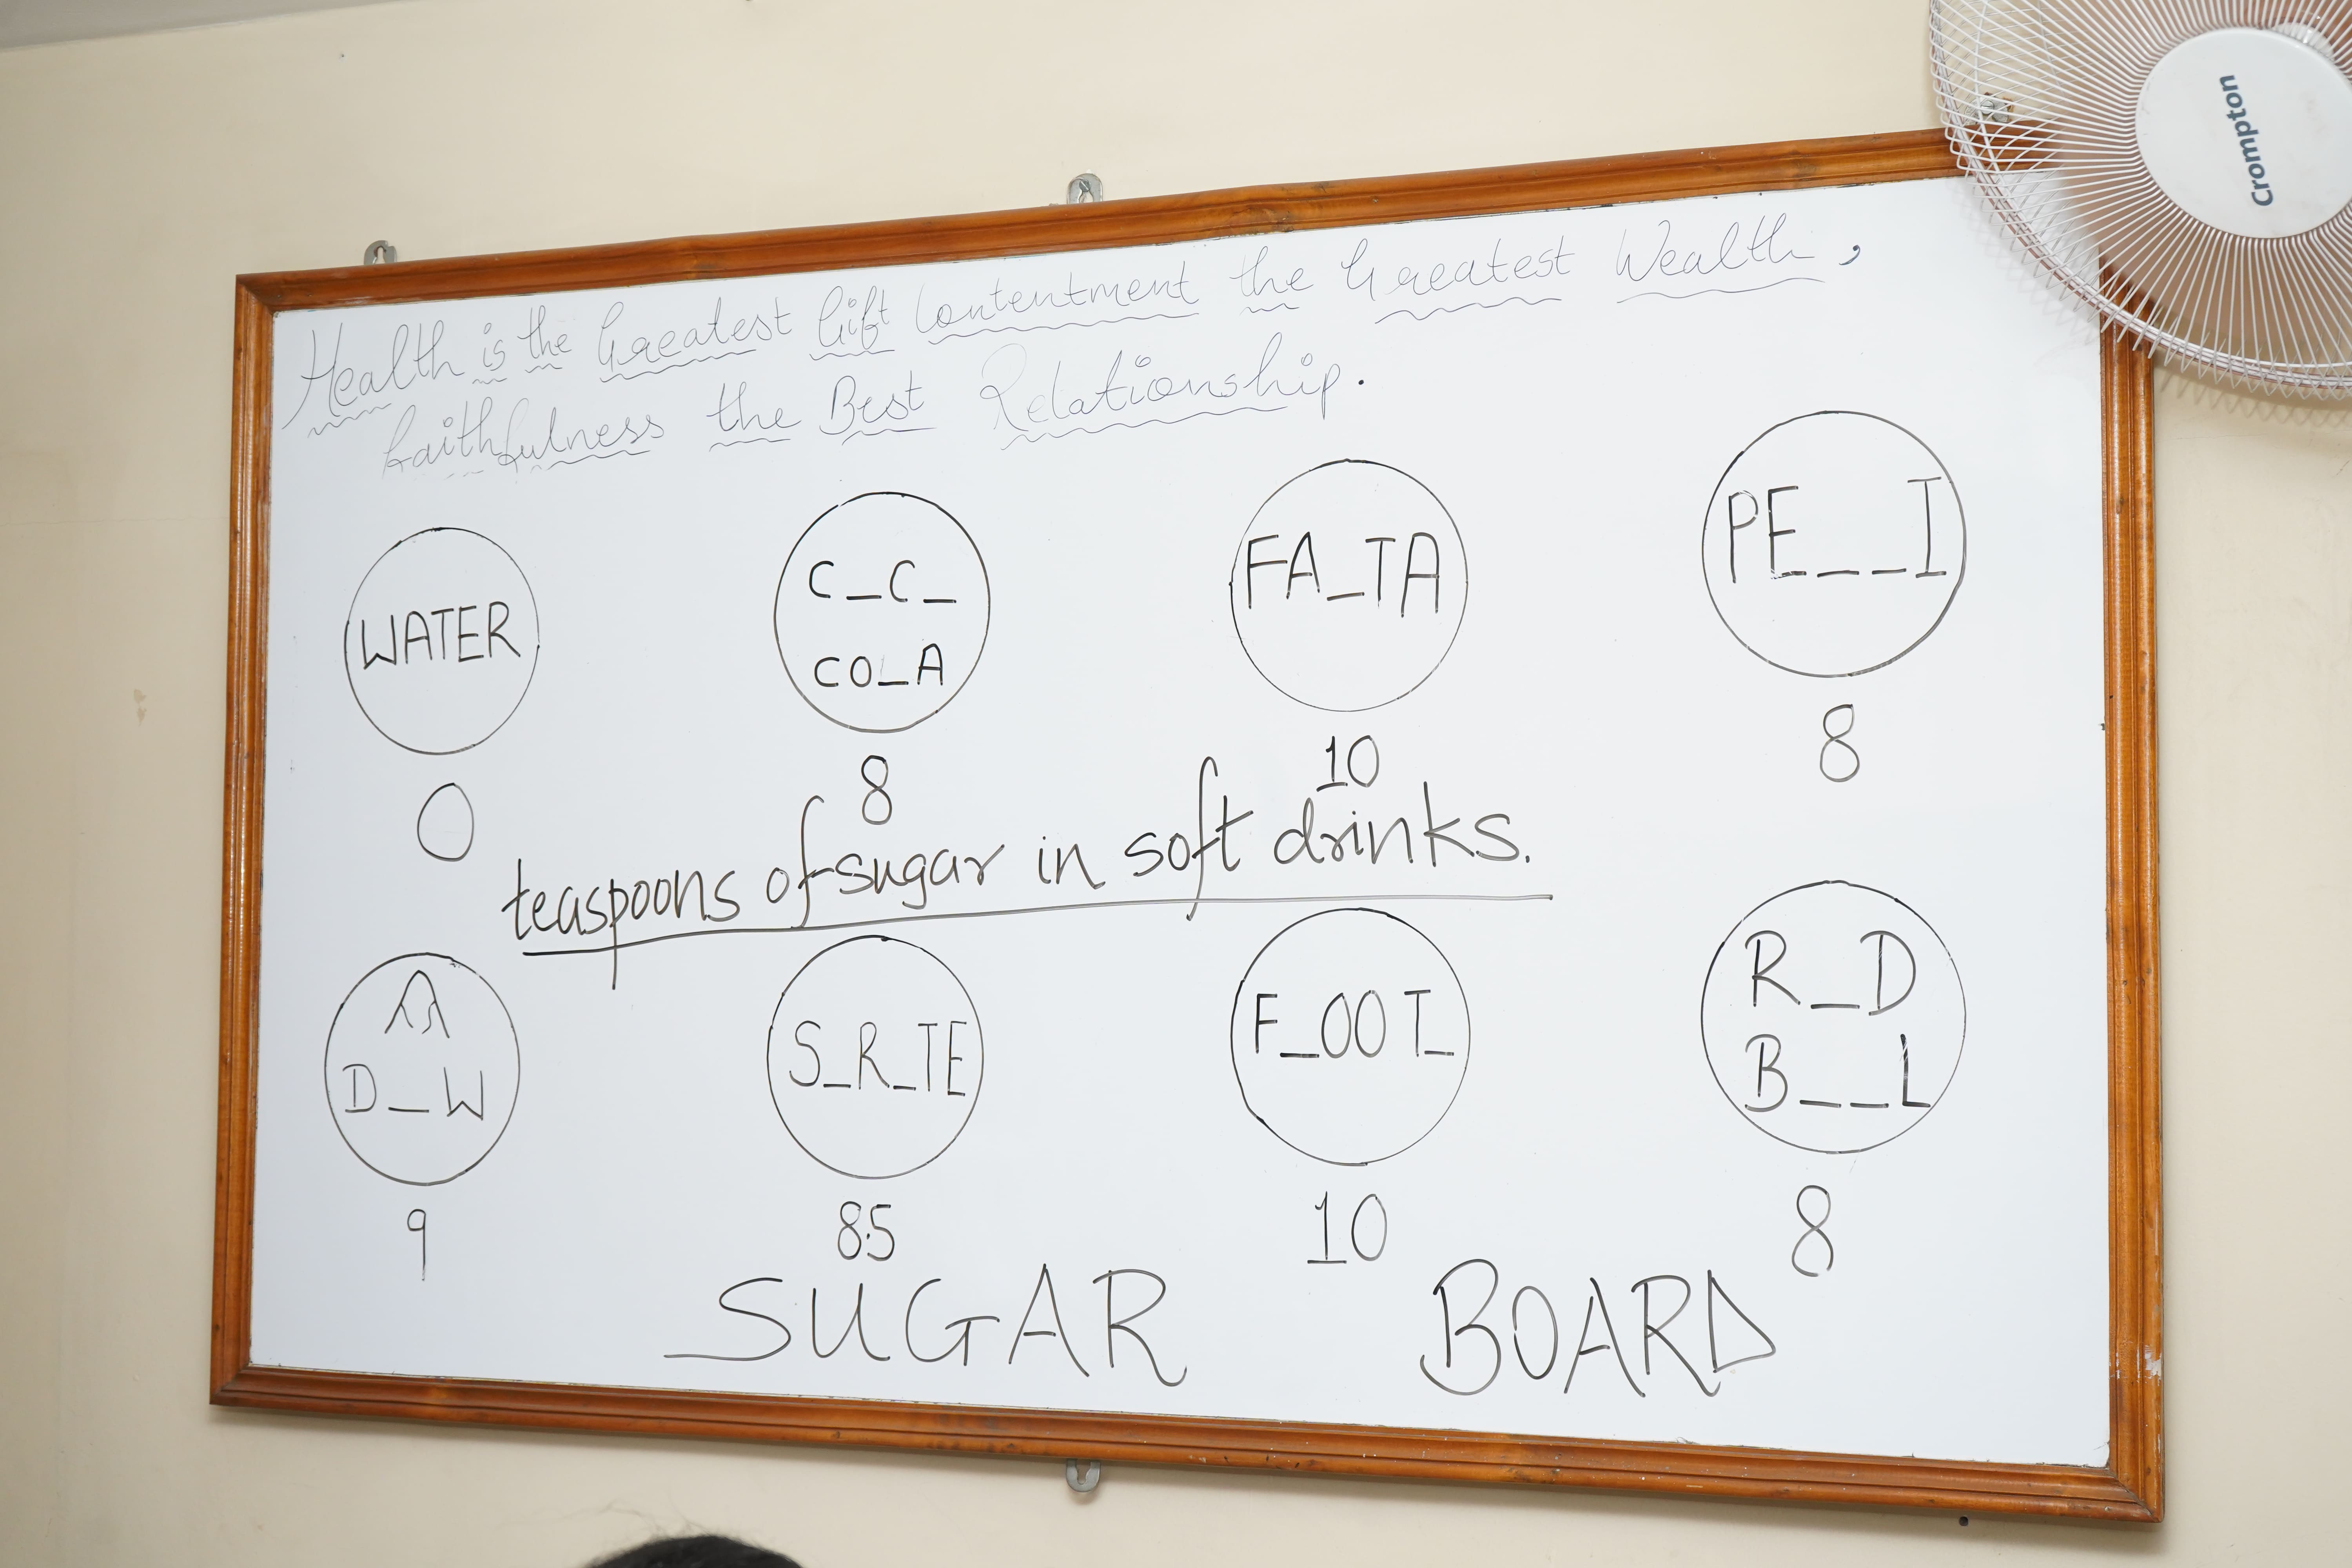 Crompton
Health is the Greatest Gift Contentment the Greatest Wealth,
faithfulness the Best Relationship.
WATER
0
C_C_
CO_A
8
FA_TA
10
PE__I
8
teaspoons of sugar in soft drinks.
D_W
9
S_R_TE
8.5
F_OOT_
10
R_D
B__L
8
SUGAR BOARD